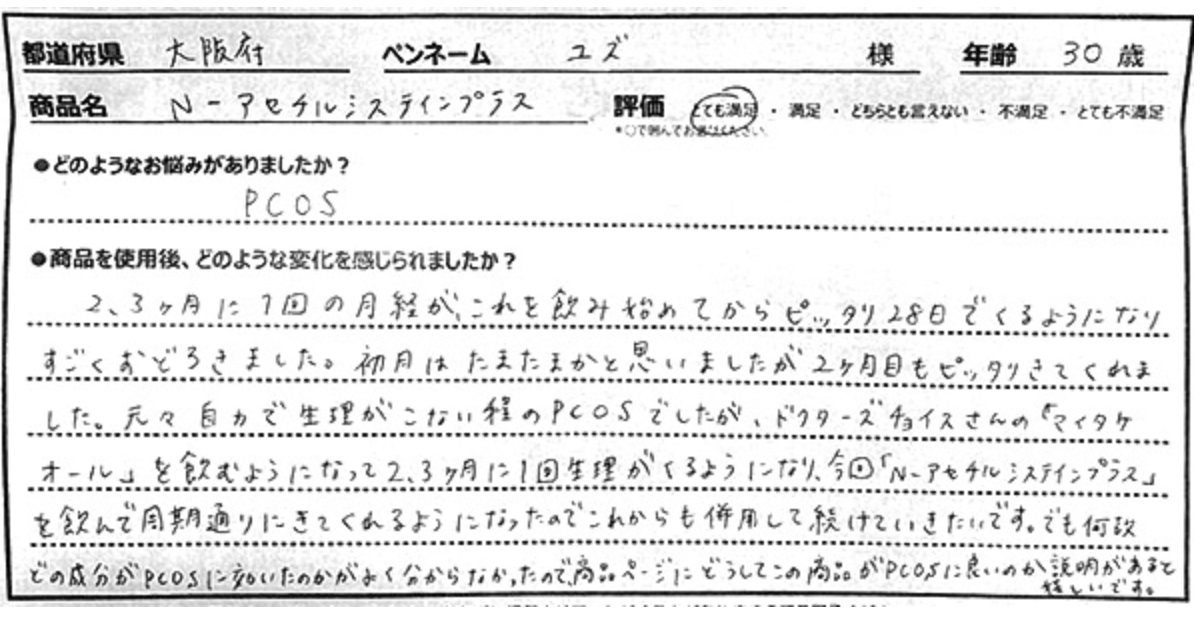 都道府県 大阪府 ペンネーム ユズ 様 年齢 30 歳
商品名 N-アセチルシステインプラス 評価 とても満足 ・ 満足 ・ どちらとも言えない ・ 不満足 ・ とても不満足
*○で囲んでお選びください
●どのようなお悩みがありましたか?
PCOS
●商品を使用後、どのような変化を感じられましたか?
2、3ヶ月に1回の月経が、これを飲み始めてからピッタリ28日でくるようになり
すごくおどろきました。初月はたまたまかと思いましたが2ヶ月目もピッタリきてくれま
した。元々自力で生理がこない程のPCOSでしたが、ドクターズチョイスさんの『マイタケ
オール』を飲むようになって2、3ヶ月に1回生理がくるようになり、今回「N-アセチルシステインプラス」
を飲んで周期通りにきてくれるようになったのでこれからも併用して続けていきたいです。でも何故
どの成分がPCOSに効いたのかがよく分からなかったので、商品ページにどうしてこの商品がPCOSに良いのか説明があると
嬉しいです。